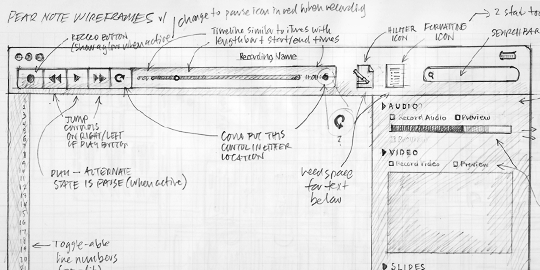 PEAR NOTE WIREFRAMES v1
change to pause icon in red when recording
RECORD BUTTON
(show
when active)
Timeline similar to iTunes with
length but start/end times
HILITER
ICON
FORMATTING
ICON
2 stat
SEARCH BAR
Recording Name
JUMP
CONTROLS
ON RIGHT/LEFT
OF PLAY BUTTON
COULD PUT THIS
CONTROL IN EITHER
LOCATION
?
PLAY — ALTERNATE
STATE IS PAUSE (when active)
need space
for text
below
Toggle-able
line numbers
AUDIO
Record Audio
Preview
VIDEO
Record Video
Preview
SLIDES